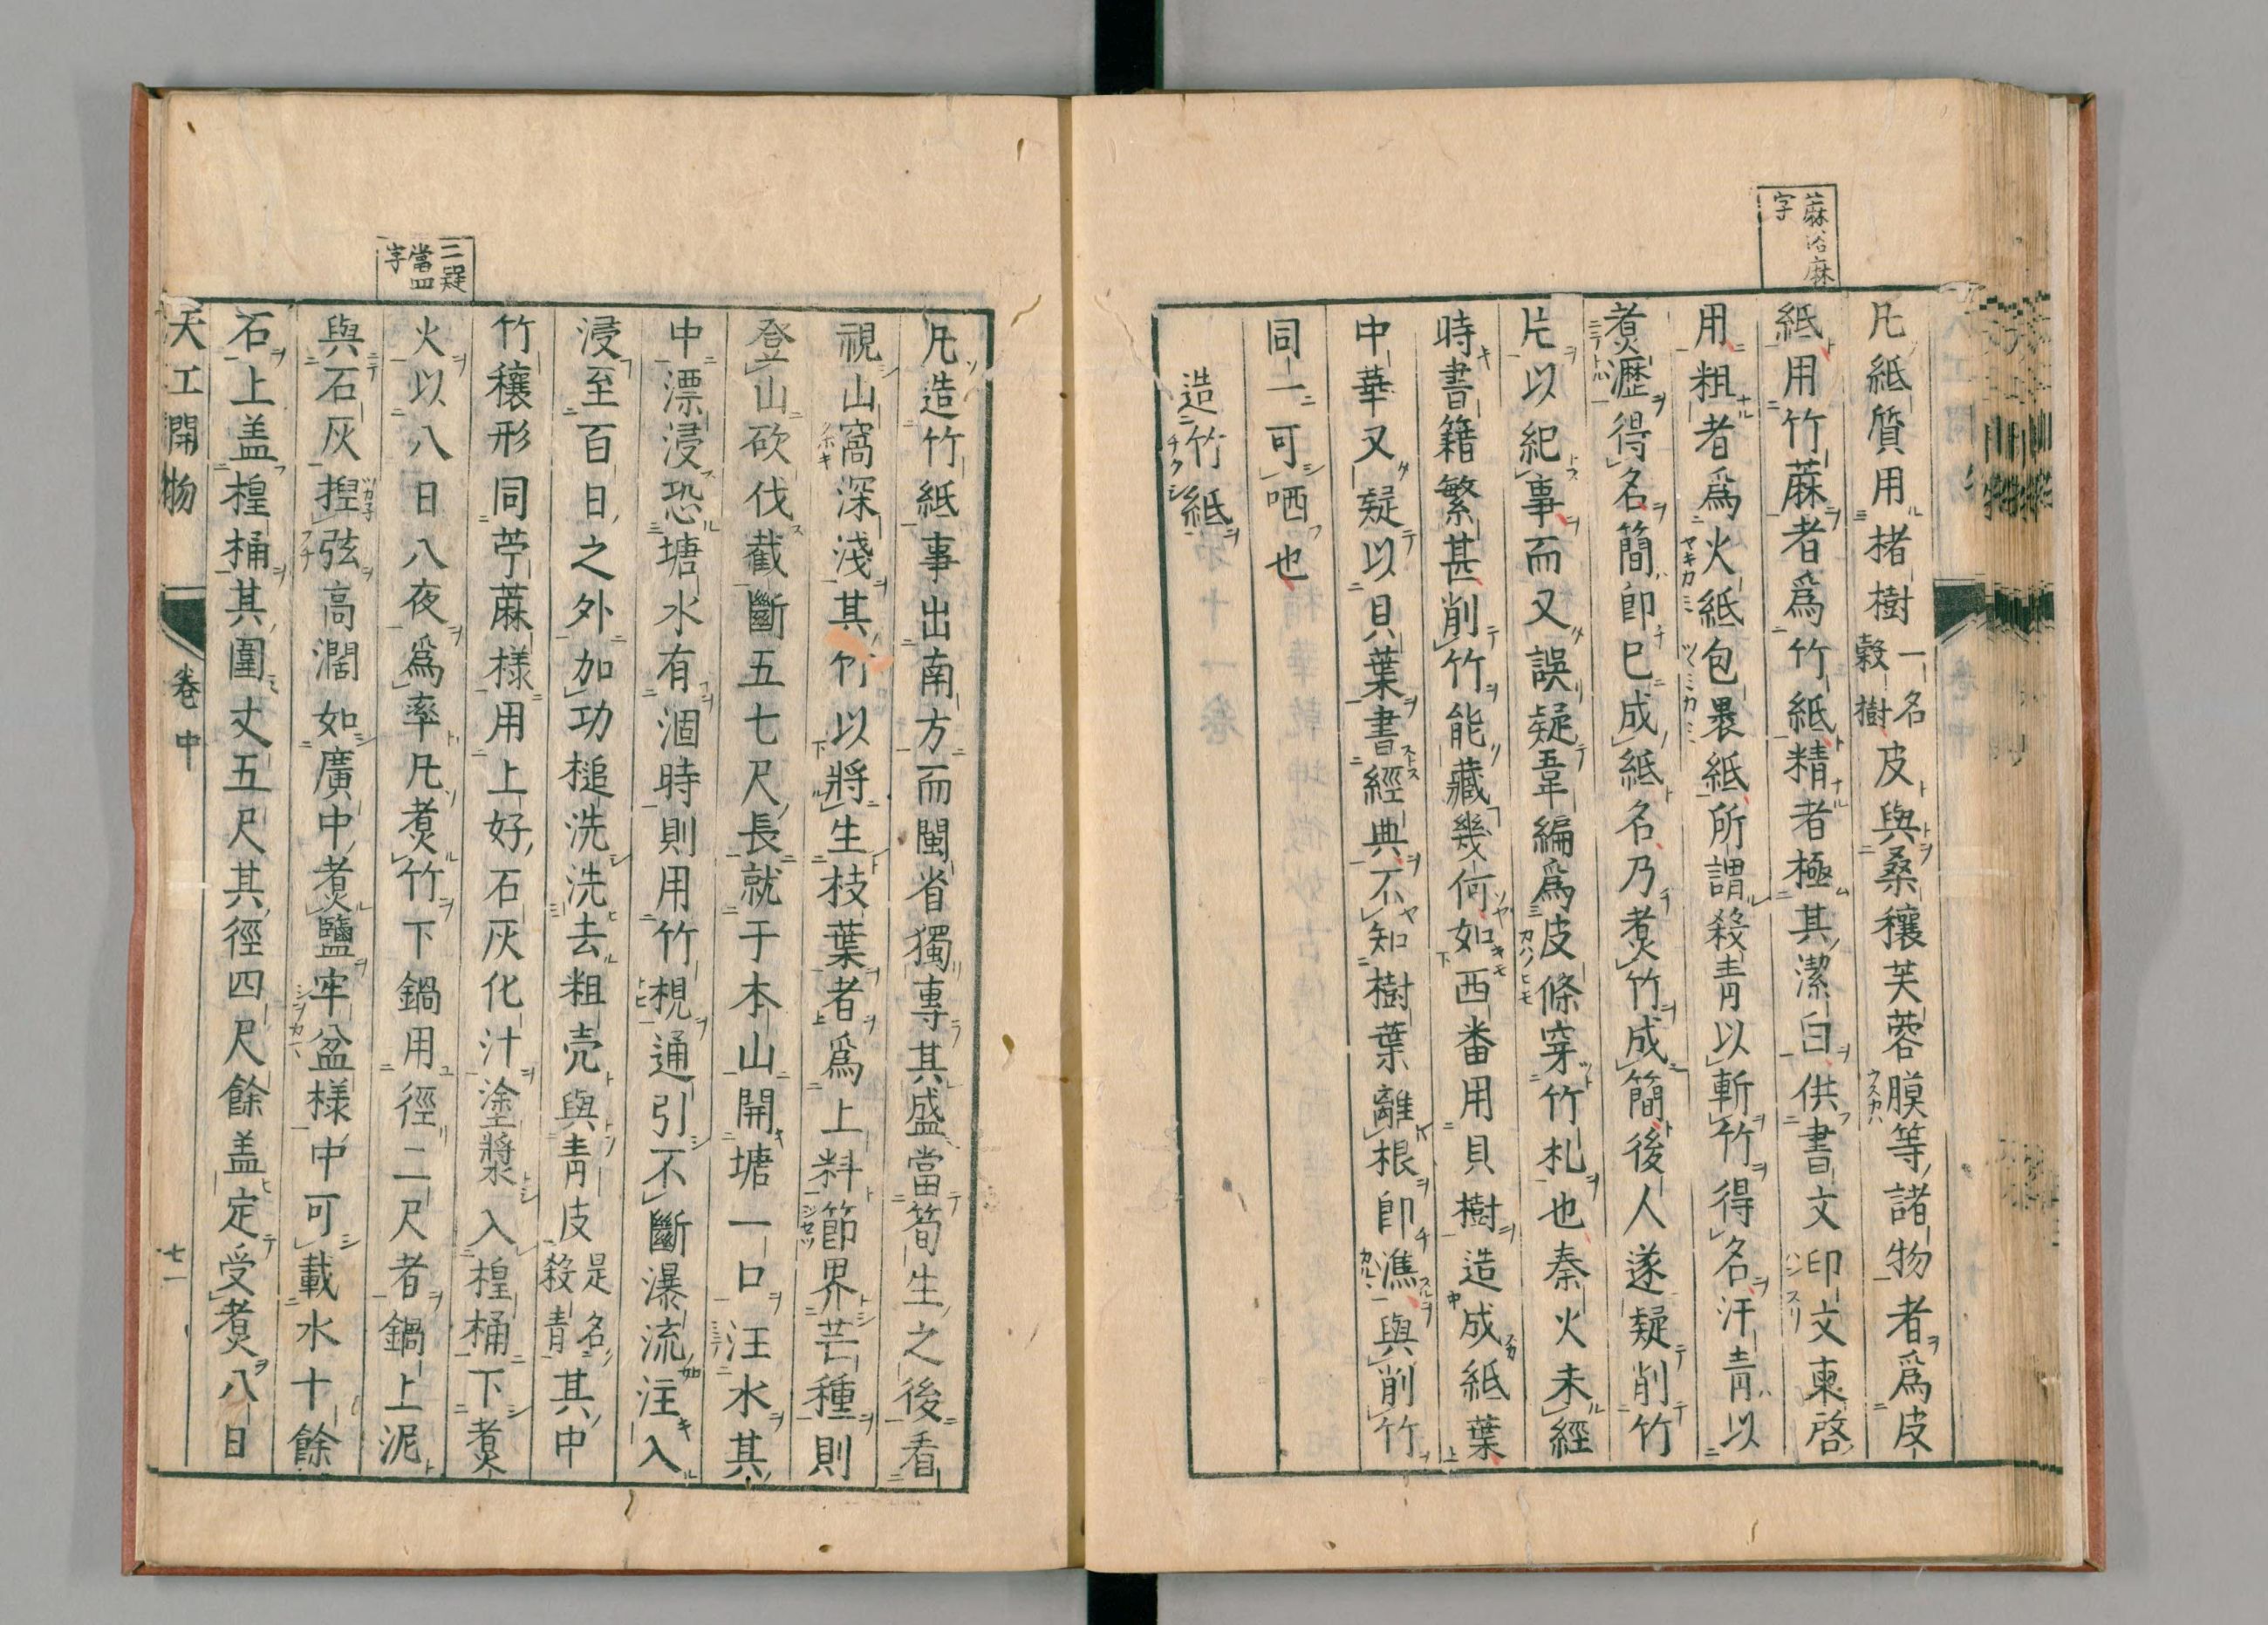 蔴俗麻
字
凡紙質用楮樹一名穀樹皮與桑穰芙蓉膜等諸物者爲皮
紙用竹蔴者爲竹紙精者極其潔白供書文印文柬啓
用粗者爲火紙包裹紙所謂殺青以斬竹得名汗青以
煑瀝得名簡卽巳成紙名乃煑竹成簡後人遂疑削竹
片以紀事而又誤疑韋編爲皮條穿竹札也秦火未經
時書籍繁甚削竹能藏幾何如西番用貝樹造成紙葉
中華又疑以貝葉書經典不知樹葉離根卽漁與削竹
同一可哂也
造竹紙
凡造竹紙事出南方而閩省獨專其盛當筍生之後看
視山窩深淺其竹以將生枝葉者爲上料節界芒種則
登山砍伐截斷五七尺長就于本山開塘一口汪水其
中漂浸恐塘水有涸時則用竹梘通引不斷瀑流注入
浸至百日之外加功槌洗洗去粗壳與青皮是名殺青其中
竹穰形同苧蔴樣用上好石灰化汁塗漿入楻桶下煑
火以八日八夜爲率凡煑竹下鍋用徑二尺者鍋上泥
與石灰揑弦高濶如廣中煑鹽牢盆樣中可載水十餘
石上盖楻桶其圍丈五尺其徑四尺餘盖定受煑八日
二疑
當四
字
天工開物
卷中
七一